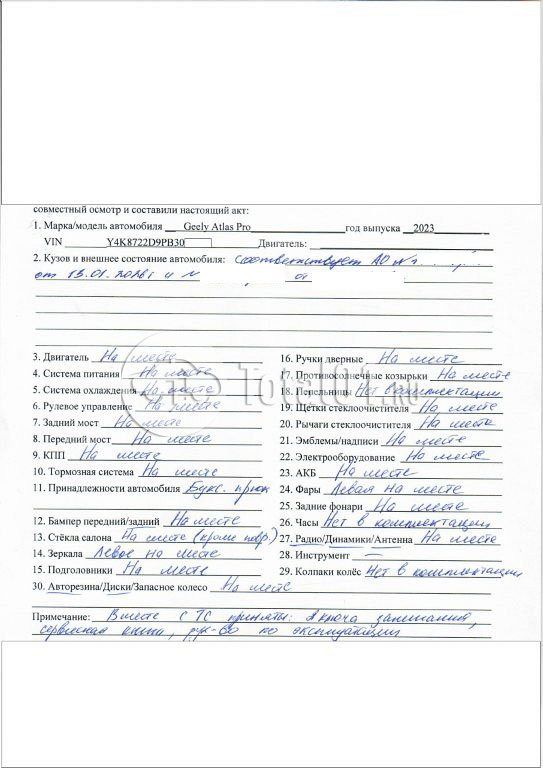 совместный осмотр и составили настоящий акт:
1. Марка/модель автомобиля Geely Atlas Pro год выпуска 2023
VIN Y4K8722D9PB30 Двигатель:
2. Кузов и внешнее состояние автомобиля: Соответствует АО №
от 13.01.2026г и № от
3. Двигатель На месте
4. Система питания На месте
5. Система охлаждения На месте
6. Рулевое управление На месте
7. Задний мост На месте
8. Передний мост На месте
9. КПП На месте
10. Тормозная система На месте
11. Принадлежности автомобиля Букс. крюк
12. Бампер передний/задний На месте
13. Стёкла салона На месте (кроме повр.)
14. Зеркала Левое на месте
15. Подголовники На месте
16. Ручки дверные На месте
17. Противосолнечные козырьки На месте
18. Пепельницы Нет в комплектации
19. Щетки стеклоочистителя На месте
20. Рычаги стеклоочистителя На месте
21. Эмблемы/надписи На месте
22. Электрооборудование На месте
23. АКБ На месте
24. Фары Левая на месте
25. Задние фонари На месте
26. Часы Нет в комплектации
27. Радио/Динамики/Антенна На месте
28. Инструмент —
29. Колпаки колёс Нет в комплектации
30. Авторезина/Диски/Запасное колесо На месте
Примечание: Вместе с ТС приняты: 2 ключа зажигания,
сервисная книга, рук-во по эксплуатации
Total01.ru